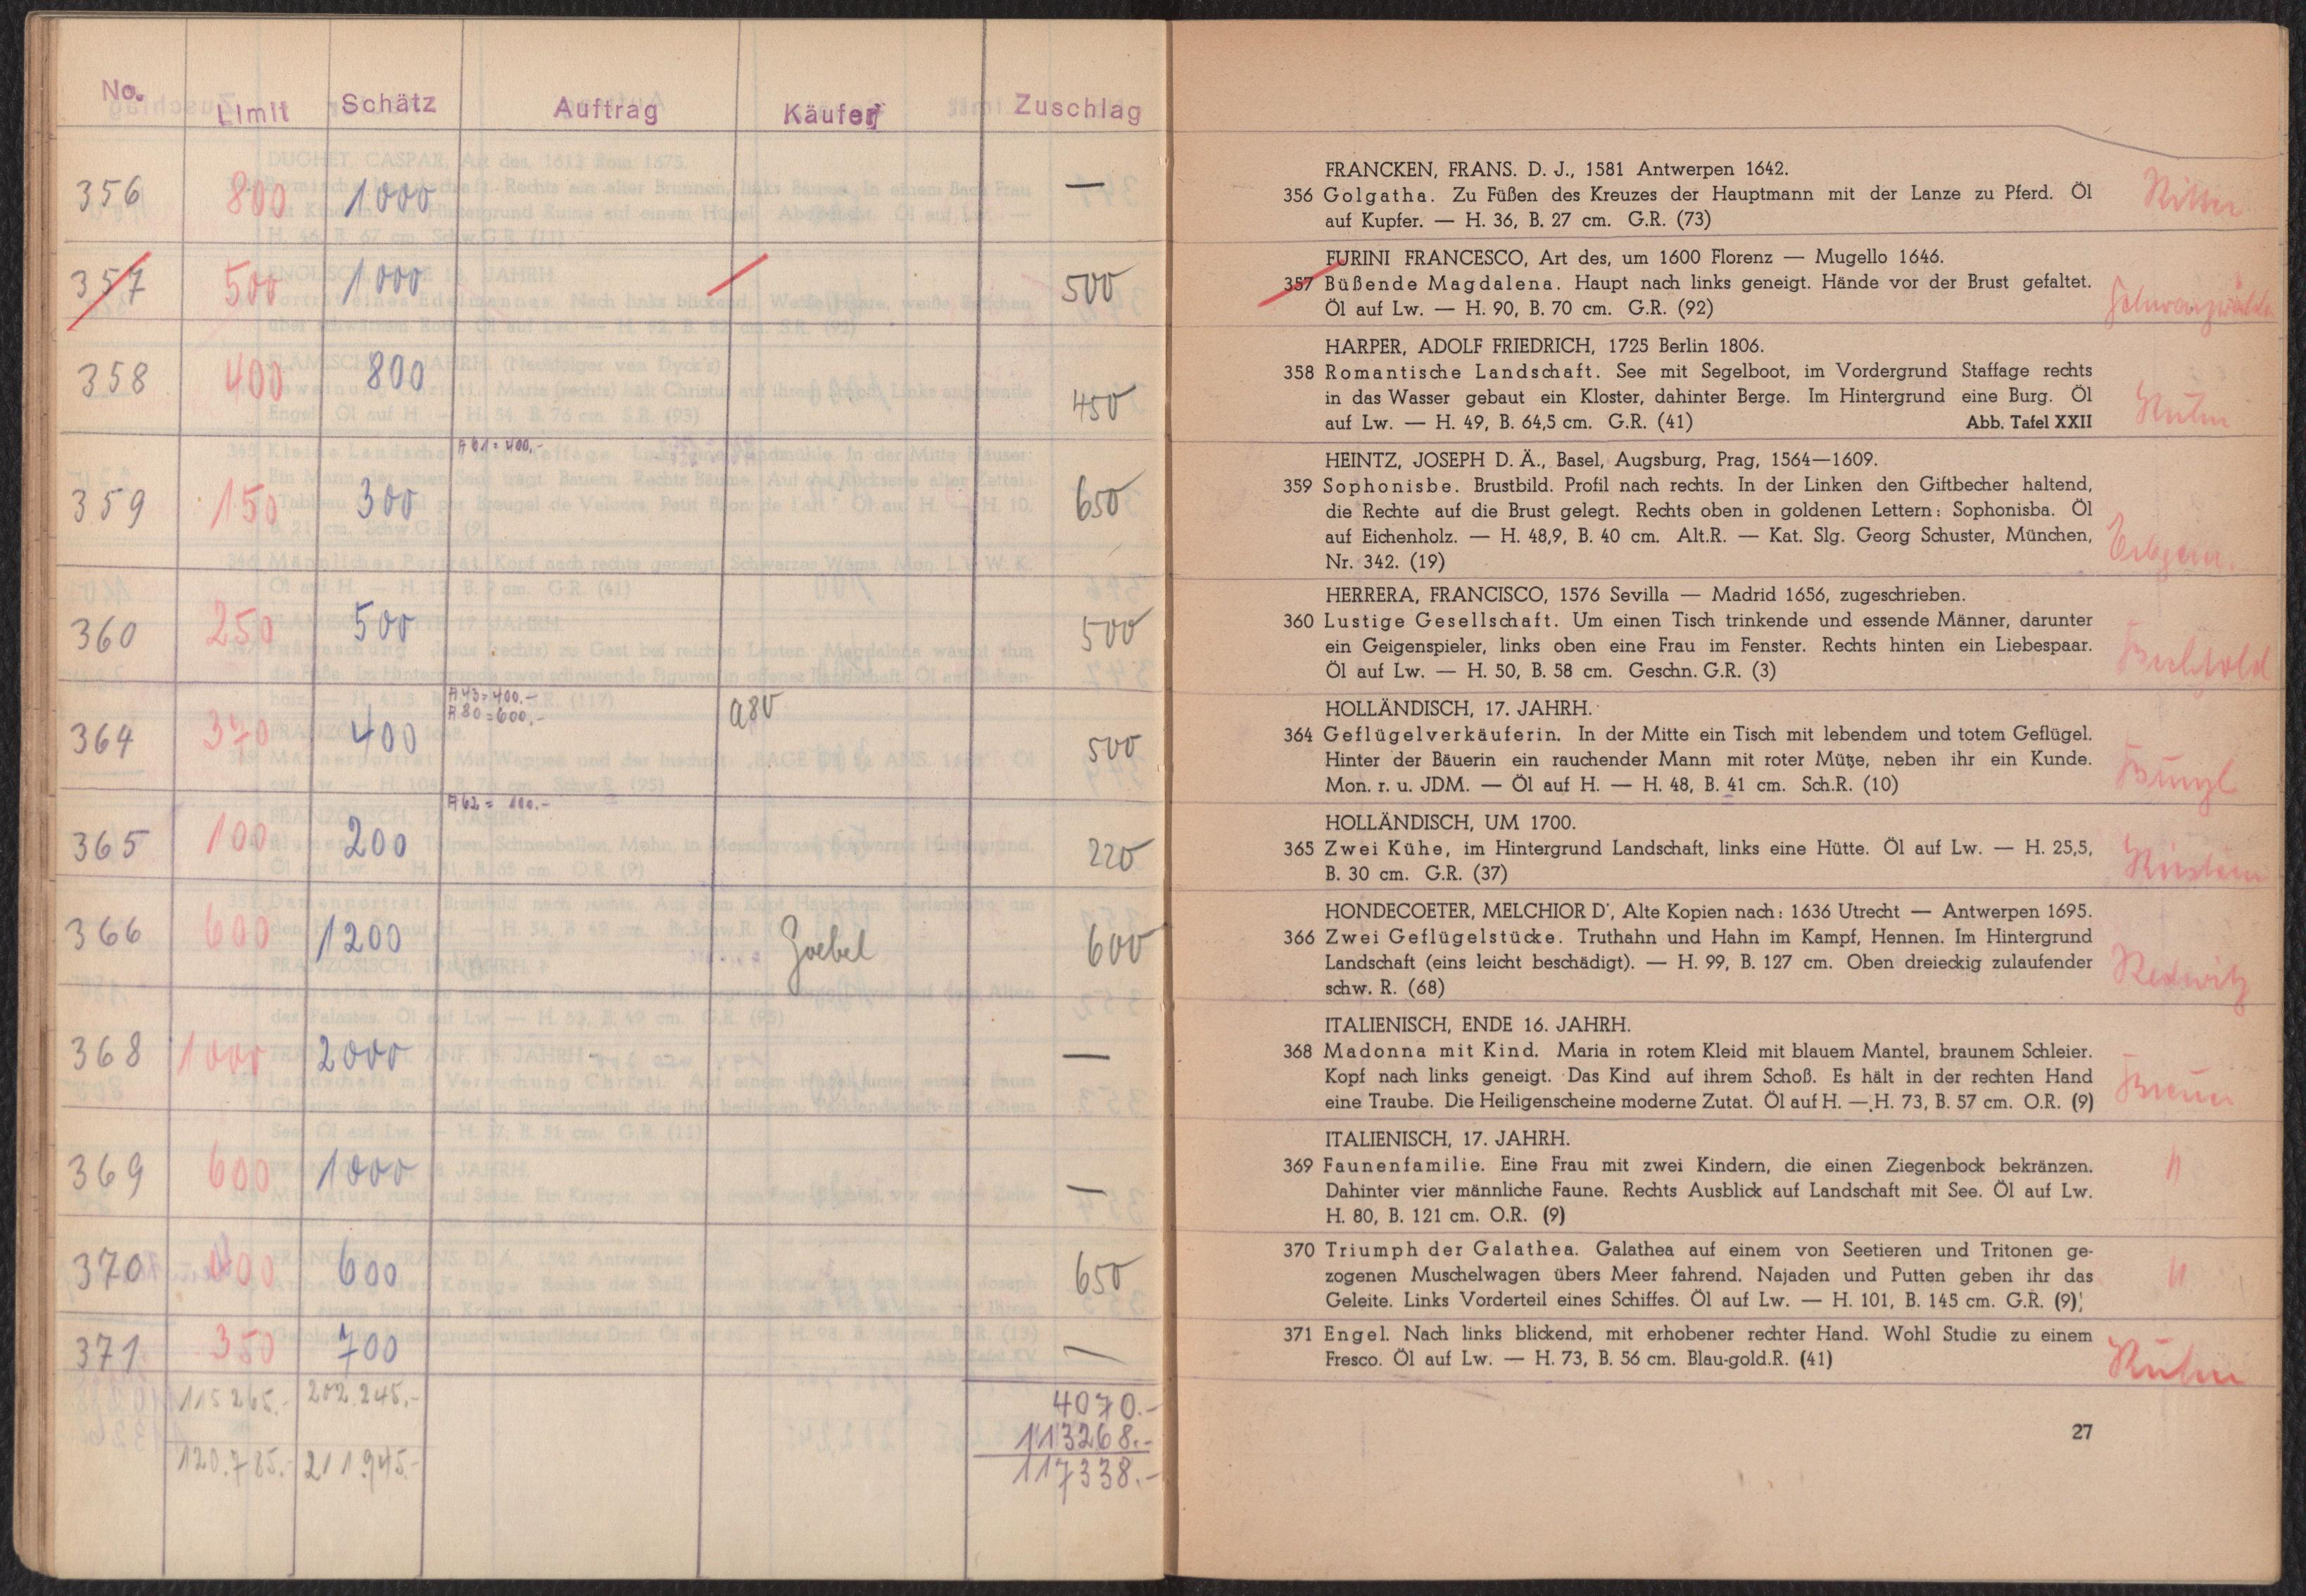 No. Limit Schätz Auftrag Käufer Zuschlag
356 800 1000 —
357 500 1000 500
358 400 800 450
A 61 = 400.-
359 150 300 650
360 250 500 500
A 43 = 400.-
A 80 = 600.-
364 370 400 a80 500
A 62 = 100.-
365 100 200 220
366 600 1200 Goebel 600
368 1000 2000 —
369 600 1000 —
370 400 600 650
371 350 700 —
115265.- 202.245.- 4070.-
113268.-
120.785.- 211.945.- 117338.-
FRANCKEN, FRANS. D. J., 1581 Antwerpen 1642.
356 Golgatha. Zu Füßen des Kreuzes der Hauptmann mit der Lanze zu Pferd. Öl Ritter
auf Kupfer. — H. 36, B. 27 cm. G.R. (73)
FURINI FRANCESCO, Art des, um 1600 Florenz — Mugello 1646.
357 Büßende Magdalena. Haupt nach links geneigt. Hände vor der Brust gefaltet.
Öl auf Lw. — H. 90, B. 70 cm. G.R. (92)
HARPER, ADOLF FRIEDRICH, 1725 Berlin 1806.
358 Romantische Landschaft. See mit Segelboot, im Vordergrund Staffage rechts
in das Wasser gebaut ein Kloster, dahinter Berge. Im Hintergrund eine Burg. Öl
auf Lw. — H. 49, B. 64,5 cm. G.R. (41) Abb. Tafel XXII
HEINTZ, JOSEPH D. Ä., Basel, Augsburg, Prag, 1564—1609.
359 Sophonisbe. Brustbild. Profil nach rechts. In der Linken den Giftbecher haltend,
die Rechte auf die Brust gelegt. Rechts oben in goldenen Lettern: Sophonisba. Öl
auf Eichenholz. — H. 48,9, B. 40 cm. Alt.R. — Kat. Slg. Georg Schuster, München,
Nr. 342. (19)
HERRERA, FRANCISCO, 1576 Sevilla — Madrid 1656, zugeschrieben.
360 Lustige Gesellschaft. Um einen Tisch trinkende und essende Männer, darunter
ein Geigenspieler, links oben eine Frau im Fenster. Rechts hinten ein Liebespaar.
Öl auf Lw. — H. 50, B. 58 cm. Geschn. G.R. (3)
HOLLÄNDISCH, 17. JAHRH.
364 Geflügelverkäuferin. In der Mitte ein Tisch mit lebendem und totem Geflügel.
Hinter der Bäuerin ein rauchender Mann mit roter Mütze, neben ihr ein Kunde.
Mon. r. u. JDM. — Öl auf H. — H. 48, B. 41 cm. Sch.R. (10)
HOLLÄNDISCH, UM 1700.
365 Zwei Kühe, im Hintergrund Landschaft, links eine Hütte. Öl auf Lw. — H. 25,5,
B. 30 cm. G.R. (37)
HONDECOETER, MELCHIOR D', Alte Kopien nach: 1636 Utrecht — Antwerpen 1695.
366 Zwei Geflügelstücke. Truthahn und Hahn im Kampf, Hennen. Im Hintergrund
Landschaft (eins leicht beschädigt). — H. 99, B. 127 cm. Oben dreieckig zulaufender Redwitz
schw. R. (68)
ITALIENISCH, ENDE 16. JAHRH.
368 Madonna mit Kind. Maria in rotem Kleid mit blauem Mantel, braunem Schleier.
Kopf nach links geneigt. Das Kind auf ihrem Schoß. Es hält in der rechten Hand
eine Traube. Die Heiligenscheine moderne Zutat. Öl auf H. — H. 73, B. 57 cm. O.R. (9)
ITALIENISCH, 17. JAHRH.
369 Faunenfamilie. Eine Frau mit zwei Kindern, die einen Ziegenbock bekränzen. "
Dahinter vier männliche Faune. Rechts Ausblick auf Landschaft mit See. Öl auf Lw.
H. 80, B. 121 cm. O.R. (9)
370 Triumph der Galathea. Galathea auf einem von Seetieren und Tritonen ge-
zogenen Muschelwagen übers Meer fahrend. Najaden und Putten geben ihr das "
Geleite. Links Vorderteil eines Schiffes. Öl auf Lw. — H. 101, B. 145 cm. G.R. (9)
371 Engel. Nach links blickend, mit erhobener rechter Hand. Wohl Studie zu einem
Fresco. Öl auf Lw. — H. 73, B. 56 cm. Blau-gold.R. (41)
27